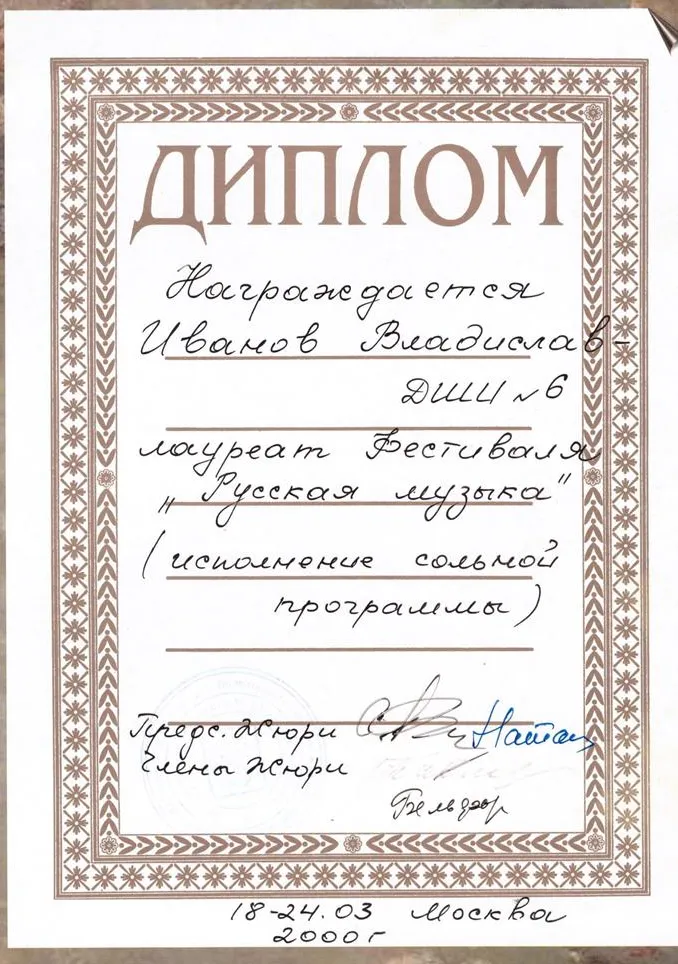 ДИПЛОМ
Награждается
Иванов Владислав-
ДШИ №6
лауреат Фестиваля
„Русская музыка"
(исполнение сольной
программы)
Предс. Жюри
Члены Жюри
18-24.03 Москва
2000г